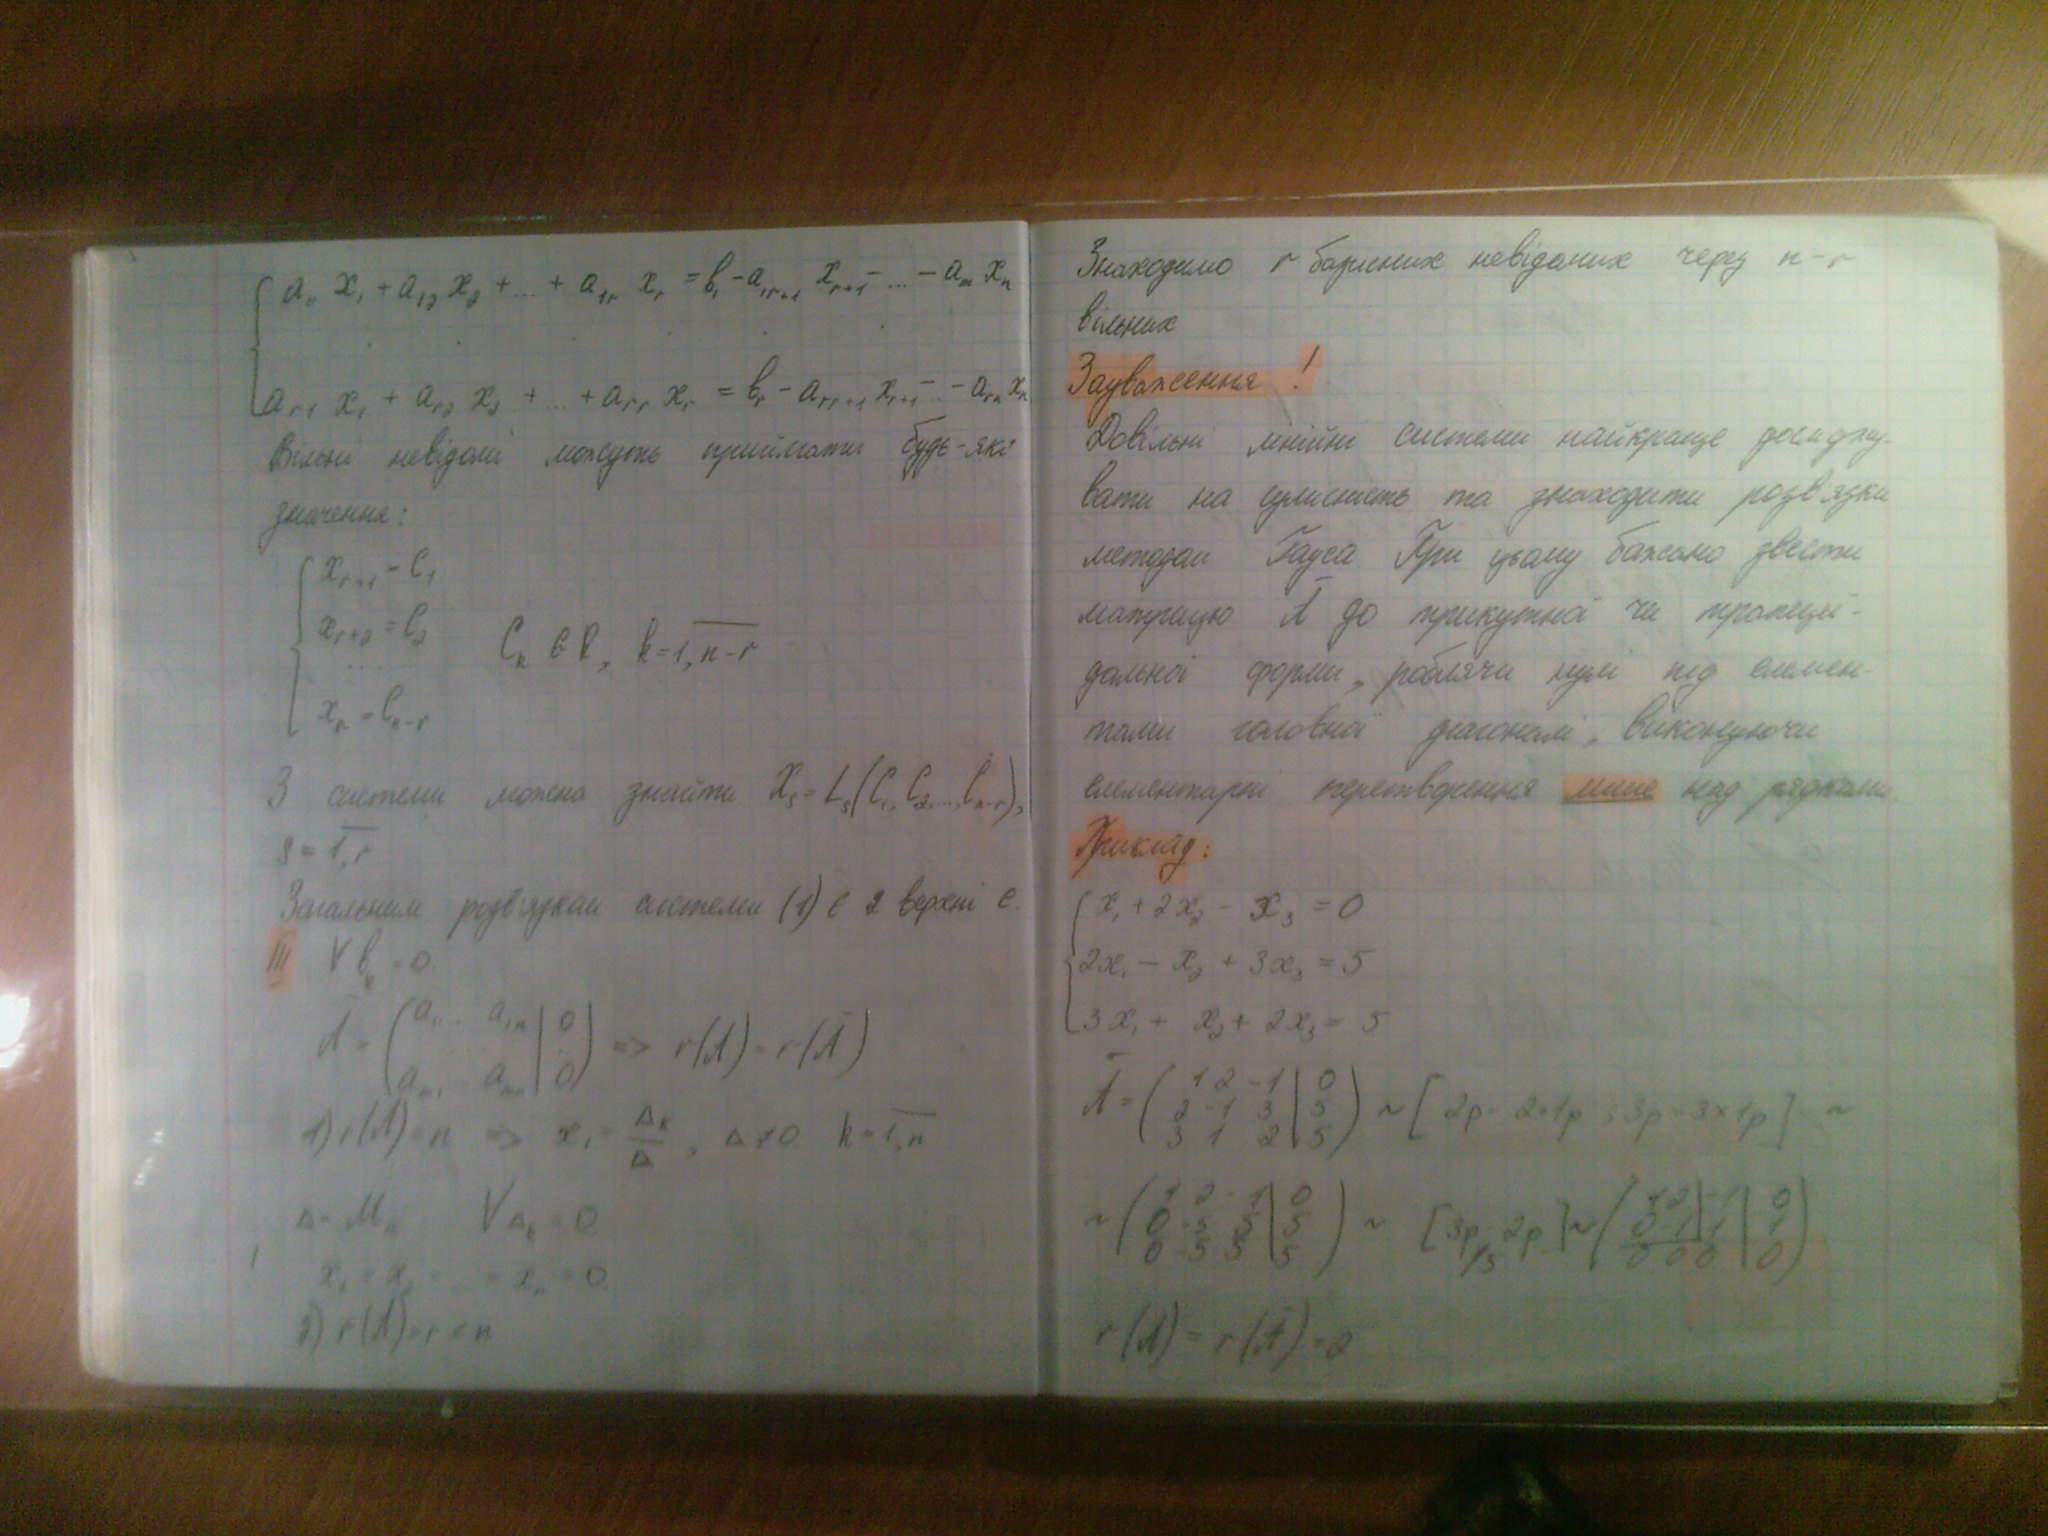 a₁₁ x₁ + a₁₂ x₂ + ... + a₁ᵣ xᵣ = b₁ - a₁ᵣ₊₁ xᵣ₊₁ - ... - a₁ₙ xₙ
. . .
aᵣ₁ x₁ + aᵣ₂ x₂ + ... + aᵣᵣ xᵣ = bᵣ - aᵣᵣ₊₁ xᵣ₊₁ - .. - aᵣₙ xₙ
Вільні невідомі можуть приймати будь-які
значення:
xᵣ₊₁ = C₁
xᵣ₊₂ = C₂
...
xₙ = Cₙ₋ᵣ
Cₖ ∈ R, k = 1, n-r
З системи можна знайти Xₛ = Lₛ(C₁, C₂, ..., Cₙ₋ᵣ),
s = 1, r
Загальним розв'язком системи (1) є 2 верхні є.
III ∀ bₖ = 0.
Ā = (a₁₁ ... a₁ₙ | 0
... | ...
aₘ₁ ... aₘₙ | 0) => r(A) = r(Ā)
1) r(A) = n => x₁ = Δₖ/Δ, Δ ≠ 0. k = 1, n
Δ = Mₙ ∀ Δₖ = 0
x₁ = x₂ = ... = xₙ = 0.
2) r(A) = r < n
Знаходимо r базисних невідомих через n-r
вільних
Зауваження!
Довільні лінійні системи найкраще досліджу-
вати на сумісність та знаходити розв'язки
методом Гауса При цьому бажано звести
матрицю Ā до трикутної чи трапеції-
дальної форми, роблячи нулі під елемен-
тами головної діагоналі, виконуючи
елементарні перетворення лише над рядками.
Приклад:
x₁ + 2x₂ - x₃ = 0
2x₁ - x₂ + 3x₃ = 5
3x₁ + x₂ + 2x₃ = 5
Ā = (1 2 -1 | 0
2 -1 3 | 5
3 1 2 | 5) ~ [2р - 2×1р ; 3р - 3×1р] ~
~ (1 2 -1 | 0
0 -5 5 | 5
0 -5 5 | 5) ~ [3р - 2р /5] ~ (1 2 -1 | 0
0 -1 1 | 1
0 0 0 | 0)
r(A) = r(Ā) = 2